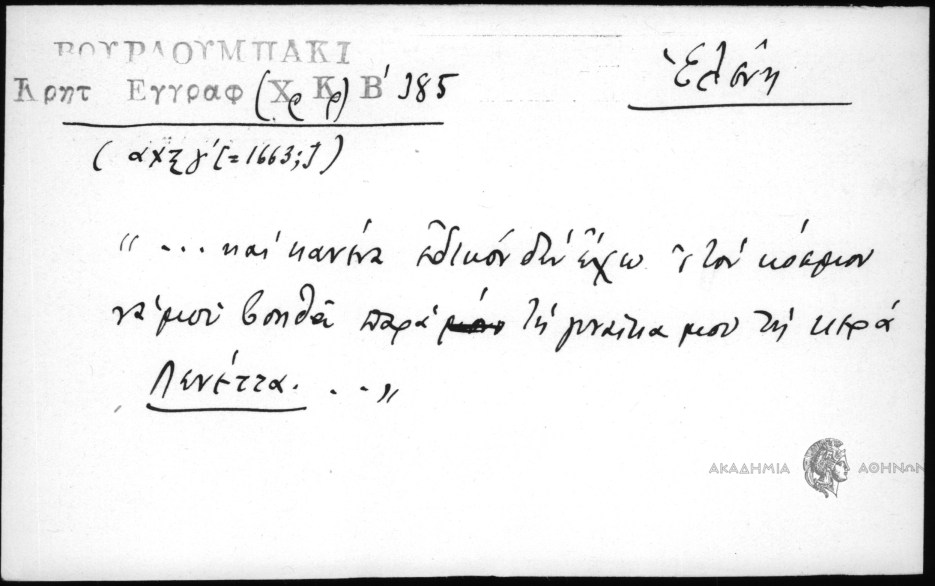 ΒΟΥΡΔΟΥΜΠΑΚΙ
Κρητ Εγγραφ (Χρ Κρ) Β' 385
Ἑλένη
(αχξγ' [=1663;])
"... καὶ κανένα ἐδικόν δὲν ἔχω 'ς τὸν κόσμον
νὰ μοῦ βοηθᾷ παρὰ τὴ γυναῖκα μου τὴ κερὰ
Λενέττα. ..."
ΑΚΑΔΗΜΙΑ ΑΘΗΝΩΝ